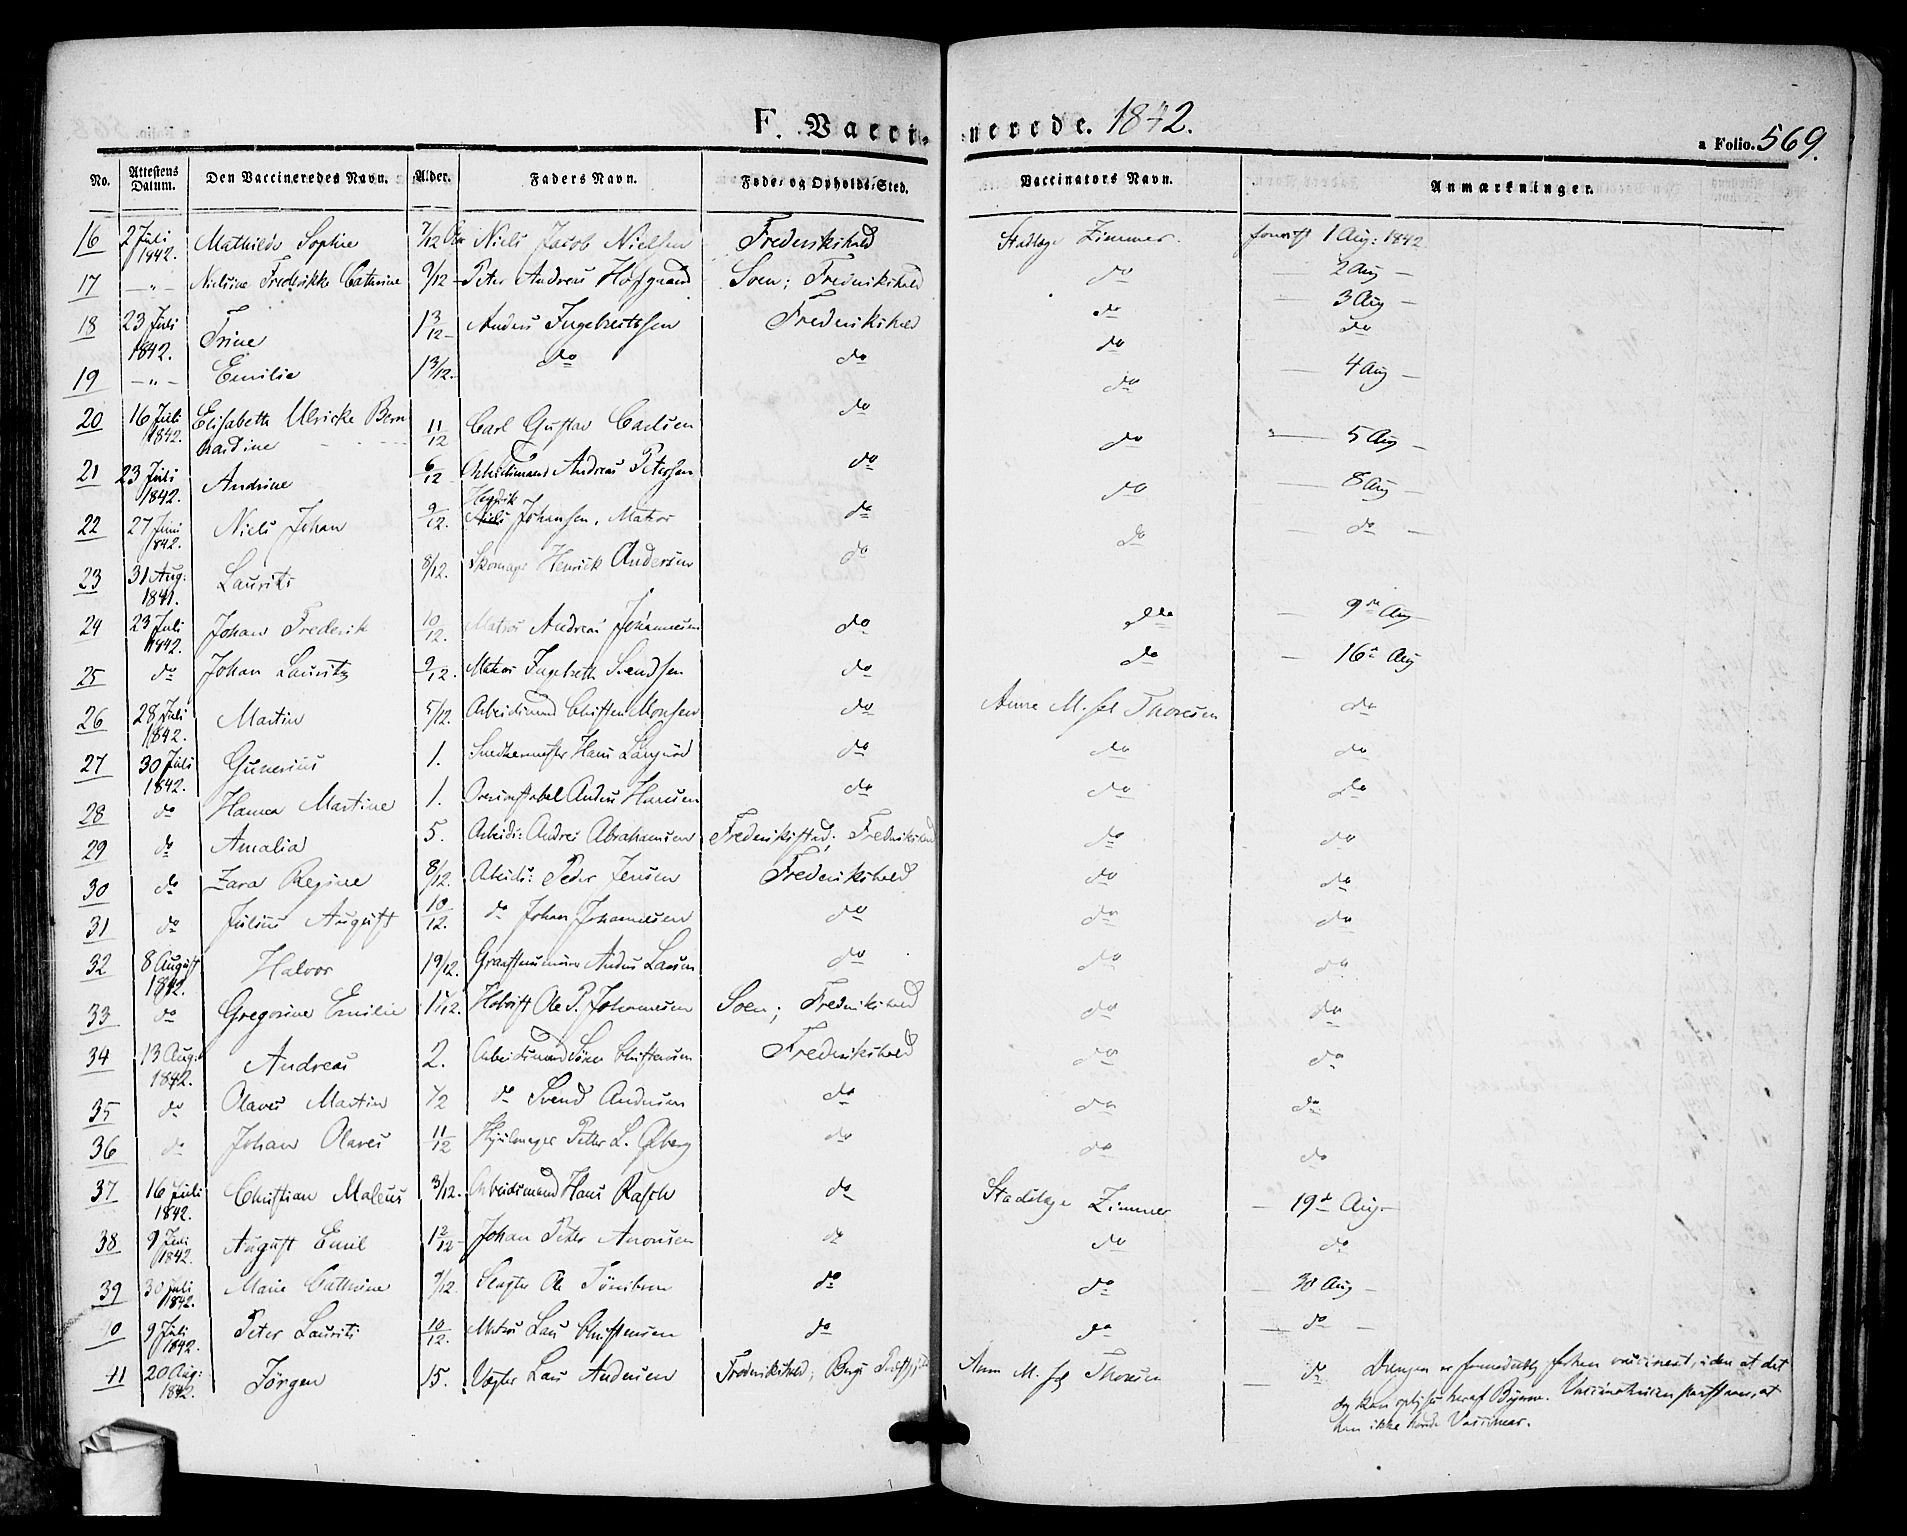 F. Vacci- nerede. 1842.
a Folio. 569.
No. Attestens Datum. Den Vaccineredes Navn. Alder. Faders Navn. Føde- og Opholds-Sted. Vaccinators Navn. Anmærkninger.
16 2 Juli 1842. Mathilde Sophie 7/12 Niels Jacob Nielsen Frederikshald Stadslæge Zimmer. 1 Aug: 1842
17 — " — Nielsine Frederikke Cathrine 9/12 Peter Andreas Høfgaard Soen; Frederikshald do — 2 Aug —
18 23 Juli 1842. Trine 1 3/12 Anders Ingebretsen Frederikshald do — 3 Aug —
19 — " — Emilie 1 3/12 do do do do
20 16 Juli 1842. Elisabeth Ulricke Bernhardine 11/12 Carl Gustav Carlsen do do — 4 Aug —
21 23 Juli 1842. Andrine 6/12 Arbeidsmand Andreas Petersen do do — 5 Aug —
22 27 Juni 1842. Niels Johan 9/12. Hendrik Johansen, Matros do do — 8 Aug —
23 31 Aug: 1841. Laurits 8/12. Skomager Henrick Andersen do do — do —
24 23 Juli 1842. Johan Frederik 10/12. Matros Andreas Johannesen do do — 9de Aug —
25 do Johan Lauritz 9/12. Matros Ingebreth Svendsen do do — 16de Aug
26 28 Juli 1842. Martin 5/12. Arbeidsmand Christen Monsen do Anne M. sel Thoresen do
27 30 Juli 1842. Gunerius 1. Snedkermester Hans Langerød do do do
28 do Hanna Martine 1. Anders Hansen do do do
29 do Amalia 5. Arbeids: Andres Abrahamsen Frederikstad; Frederikshald do do
30 do Zara Regine 8/12. Arbeids: Peder Jensen Frederikshald do do
31 do Julius August 10/12. do Johan Johannesen do do do
32 8 August 1842. Halvor 1 9/12. Anders Larsen do do do
33 do Gregorine Emilie 1 1/12. Ole P. Johannesen Soen; Frederikshald do do
34 13 Aug: 1842. Andreas 2. Arbeidsmand Søren Christensen Frederikshald do do
35 do Olaves Martin 1/2 do Svend Andersen do do do
36 do Johan Olaves 11/12 Hjulmager Petter L. Øberg do do do
37 16 Juli 1842. Christian Maleus 3/12. Arbeidsmand Hans Rasch do Stadslæge Zimmer — 19de Aug —
38 9 Juli 1842. August Emil 1 2/12 Johan Peter Aronsen do do do
39 30 Juli 1842. Marie Cathrine 9/12. Slagter Ole Tønnesen do do — 30 Aug —
40 9 Juli 1842. Peter Laurits 10/12. Matros Lars Christensen do do — do —
41 20 Aug: 1842. Jørgen 15. Vægter Lars Andersen Frederikshald; Bergs Anne M. sel Thoresen — do. Drengen er formodentlig forhen vaccineret, uden at det
dog kan oplyses heraf Byen. Vaccinatricen paastaaer, at
han ikke havde Vacciner.